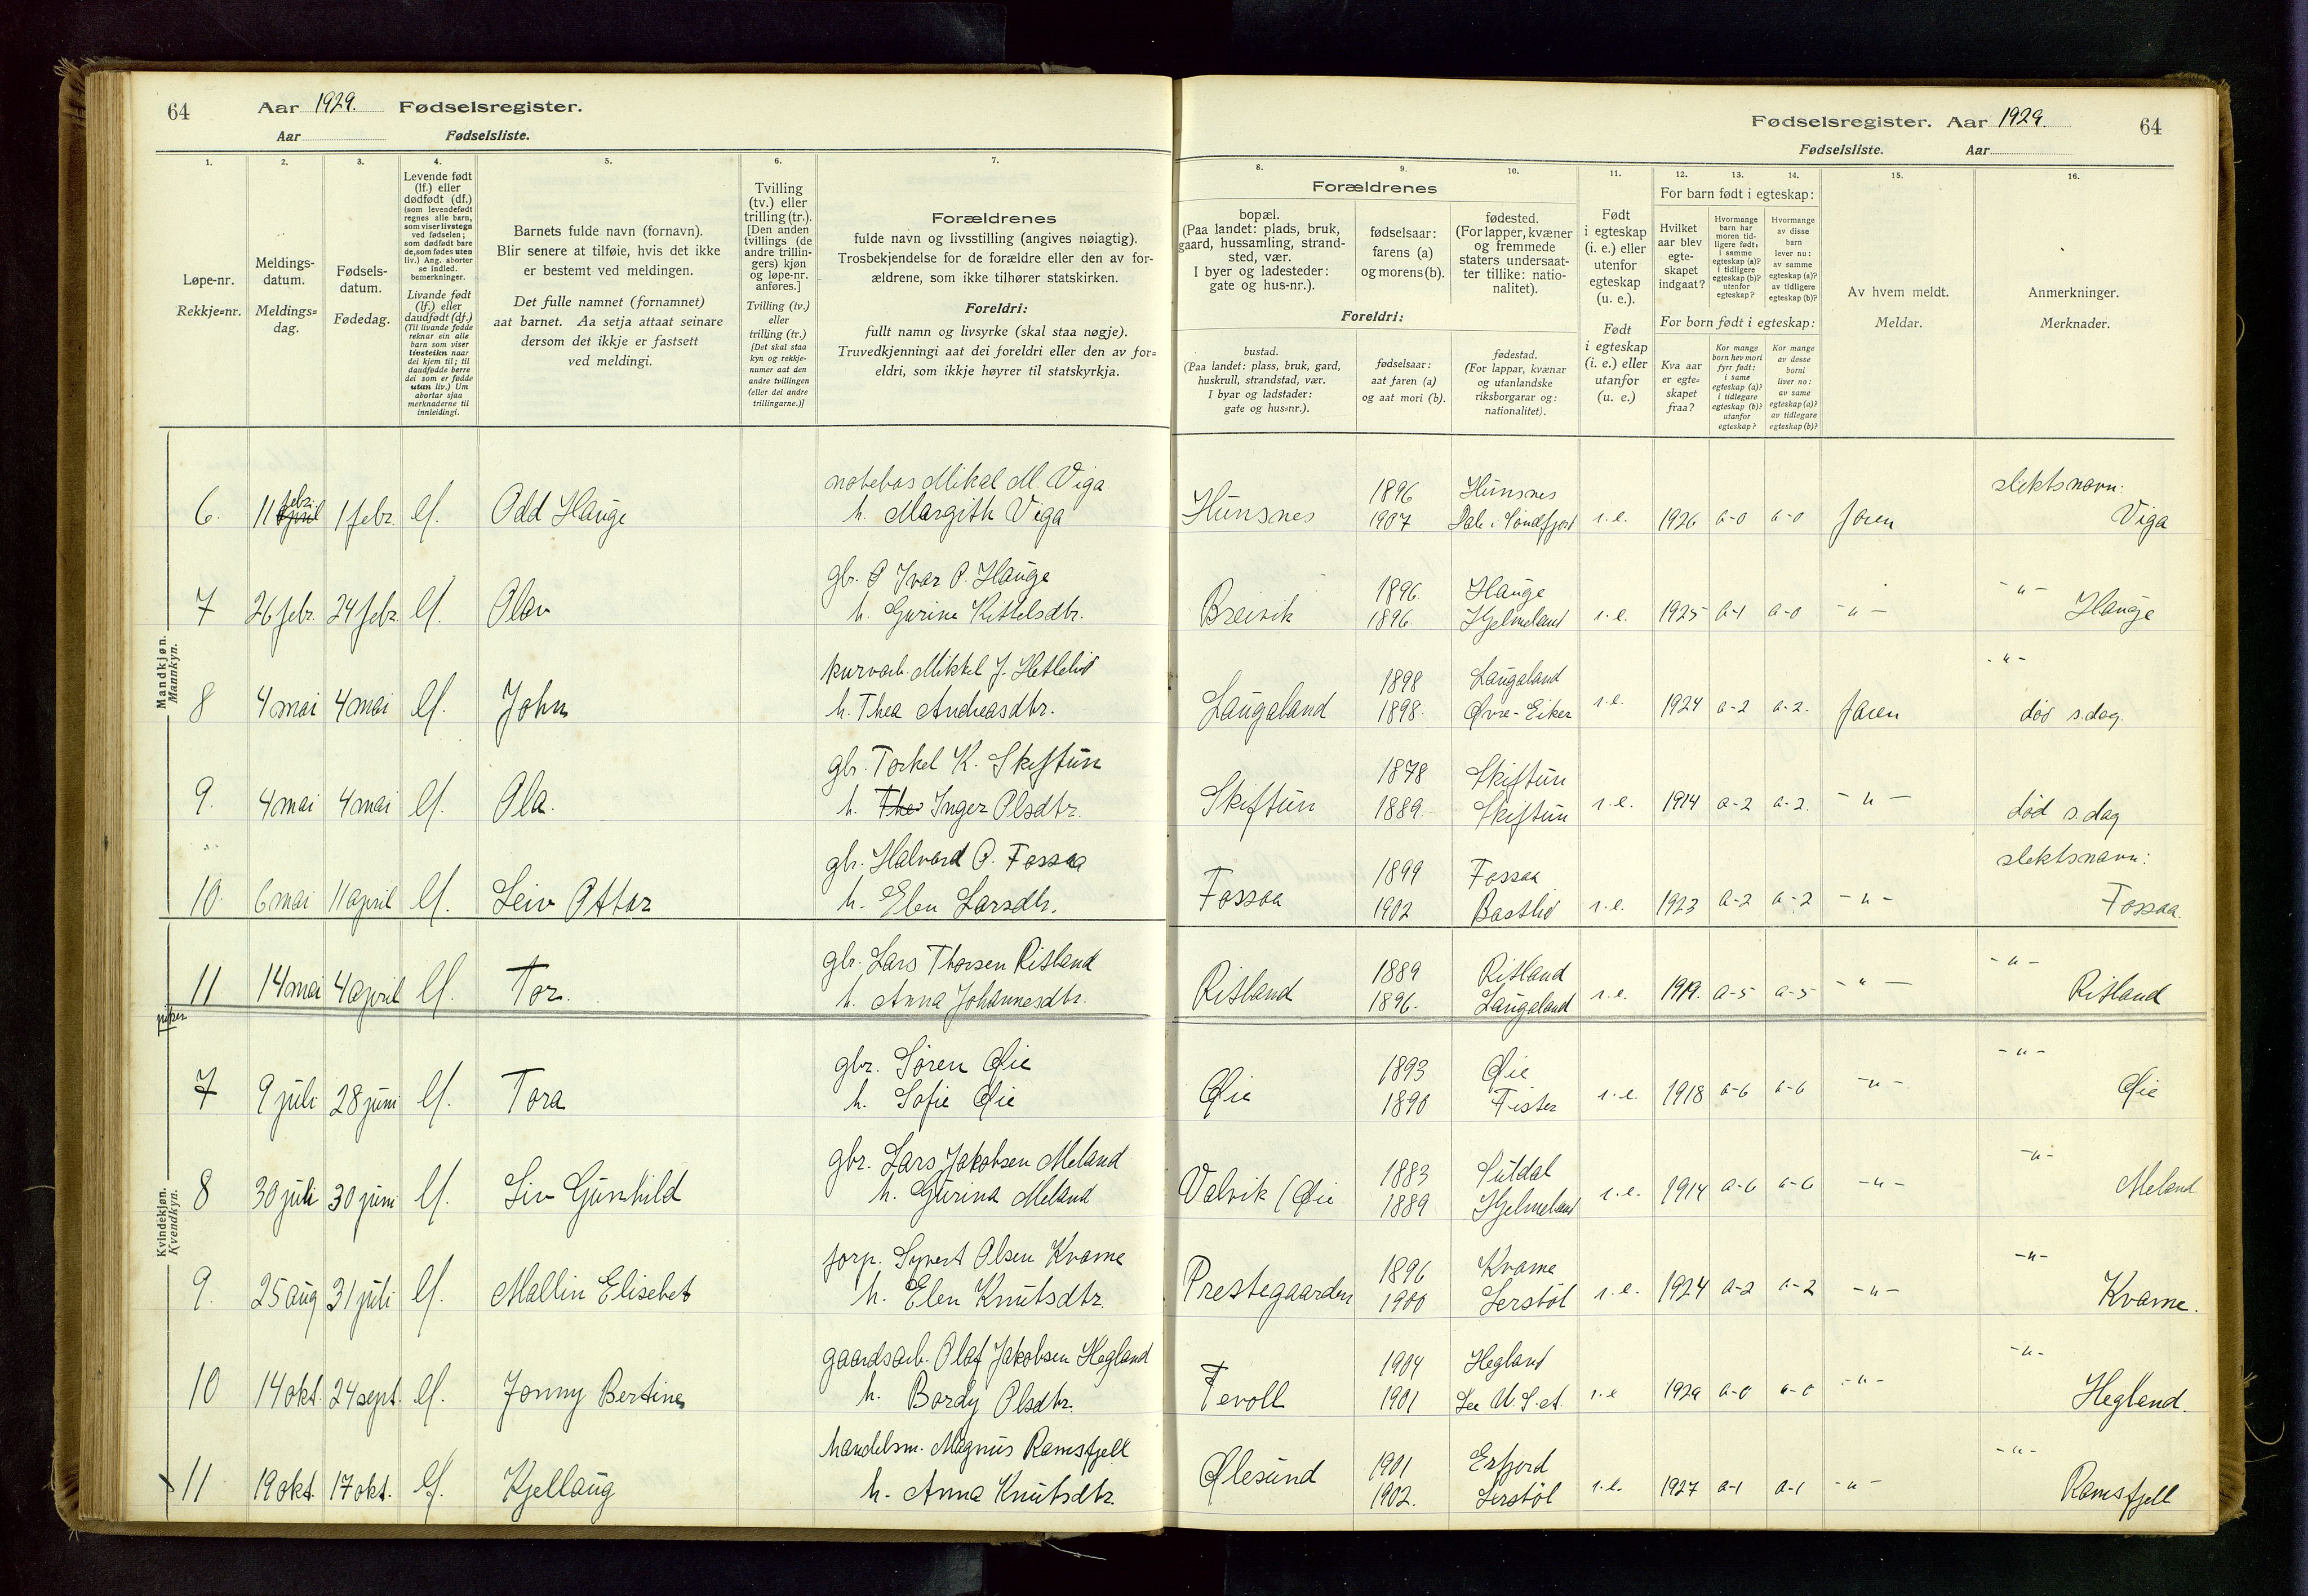 64 Aar 1929. Fødselsregister.
Aar Fødselsliste.
Fødselsregister. Aar 1929. 64
Fødselsliste. Aar
1. 2. 3. 4. 5. 6. 7.
8. 9. 10. 11. 12. 13. 14. 15. 16.
Løpe-nr.
Rekkje=nr.
Meldings-
datum.
Meldings=
dag.
Fødsels-
datum.
Fødedag.
Levende født
(lf.) eller
dødfødt (df.)
(som levendefødt
regnes alle barn,
som viser livstegn
ved fødselen;
som dødfødt bare
de, som fødes uten
liv.) Ang. aborter
se indled.
bemerkninger.
Livande født
(lf.) eller
daudfødt (df.)
(Til livande fødde
reknar ein alle
barn som viser
livsteikn naar
dei kjem til; til
daudfødde berre
dei som er fødde
utan liv.) Um
abortar sjaa
merknaderne til
innleidingi.
Barnets fulde navn (fornavn).
Blir senere at tilføie, hvis det ikke
er bestemt ved meldingen.
Det fulle namnet (fornamnet)
aat barnet. Aa setja attaat seinare
dersom det ikkje er fastsett
ved meldingi.
Tvilling
(tv.) eller
trilling (tr.).
[Den anden
tvillings (de
andre trillin-
gers) kjøn
og løpe-nr.
anføres.]
Tvilling (tv.)
eller
trilling (tr.)
[Det skal staa
kyn og rekkje-
numer aat den
andre tvillingen
(eller dei andre
trillingarne.)]
Forældrenes
fulde navn og livsstilling (angives nøiagtig).
Trosbekjendelse for de forældre eller den av for-
ældrene, som ikke tilhører statskirken.
Foreldri:
fullt namn og livsyrke (skal staa nøgje).
Truvedkjenningi aat dei foreldri eller den av for=
eldri, som ikkje høyrer til statskyrkja.
Forældrenes
bopæl.
(Paa landet: plads, bruk,
gaard, hussamling, strand-
sted, vær.
I byer og ladesteder:
gate og hus-nr.).
fødselsaar:
farens (a)
og morens (b).
fødested.
(For lapper, kvæner
og fremmede
staters undersaat-
ter tillike: natio-
nalitet).
Foreldri:
bustad.
(Paa landet: plass, bruk, gard,
huskrull, strandstad, vær.
I byar og ladstader:
gate og hus=nr.).
fødselsaar:
aat faren (a)
og aat mori (b).
fødestad.
(For lappar, kvænar
og utanlandske
riksborgarar og:
nationalitet).
Født
i egteskap
(i. e.) eller
utenfor
egteskap
(u. e.).
Født
i egteskap
(i. e.) eller
utanfor
(u. e.)
For barn født i egteskap:
Hvilket
aar blev
egte-
skapet
indgaat?
Hvormange
barn har
moren tid-
ligere født:
i samme
egteskap (a)?
i tidligere
egteskap (b)?
utenfor
egteskap?
Hvormange
av disse
barn
lever nu:
av samme
egteskap (a)?
av tidligere
egteskap (b)?
For born født i egteskap:
Kva aar
er egte=
skapet
fraa?
Kor mange
born hev mori
fyrr født:
i same
egteskap (a)?
i tidlegare
egteskap (b)?
utanfor
egteskap?
Kor mange
av desse
borni
liver no:
av same
egteskap (a)?
av tidlegare
egteskap (b)?
Av hvem meldt.
Meldar.
Anmerkninger.
Merknader.
Mandkjøn.
Mannkyn.
notebas Mikal M. Viga 1896 Hunsnes slektsnavn:
6. 11 april febr. 1 febr. lf. Odd Hauge h. Margith Viga Hunsnes 1907 Dale i Søndfjord i.e. 1926 a-0 a-0 faren Viga
gbr. Ivar P. Hauge 1896 Hauge -"-
7 26 febr. 24 febr. lf. Olav h. Gurine Kittelsdtr. Breivik 1896 Hjelmeland i.e. 1925 a-1 a-0 -"- Hauge
kurvarb. Mikkel J. Hetlelid 1898 Laugaland -"-
8 4 mai 4 mai lf. John h. Thea Andreasdtr. Laugaland 1898 Øvre-Eiker i.e. 1924 a-2 a-2 faren død s.dag.
gbr. Torkel K. Skiftun 1878 Skiftun
9. 4 mai 4 mai lf. Ola. h. Thea Inger Olsdtr. Skiftun 1889 Skiftun i.e. 1914 a-2 a-2 -"- død s.dag
gbr. Halvard O. Fossaa 1899 Fossaa slektsnavn:
10. 6 mai 11 april lf. Leiv Ottar h. Elen Larsdtr. Fossaa 1902 Bastlid i.e. 1923 a-2 a-2 -"- Fossaa.
gbr. Lars Thorsen Ritland 1889 Ritland -"-
11 14 mai 4 april lf. Tor. h. Anna Johannesdtr. Ritland 1896 Laugaland i.e. 1919. a-5 a-5 -"- Ritland
piker
Kvindekjøn.
Kvendkyn.
gbr. Søren Øie 1893 Øie -"-
7 9 juli 28 juni lf. Tora h. Sofie Øie Øie 1890 Fister i.e. 1918 a-6 a-6 -"- Øie
gbr. Lars Jakobsen Meland 1883 Suldal -"-
8 30 juli 30 juni lf. Liv Gunhild h. Gurina Meland Valvik / Øie 1889 Hjelmeland i.e. 1914 a-6 a-6 -"- Meland
forp. Syvert Olsen Kvame 1896 Kvame -"-
9. 25 aug 31 juli lf. Mallin Elisebet h. Elen Knutsdtr. Prestegaarden 1900 Lerstøl i.e. 1924 a-2 a-2 -"- Kvame.
gaardsarb. Olaf Jakobsen Hegland 1904 Hegland -"-
10 14 okt. 24 sept. lf. Jonny Bertine h. Bordy Olsdtr. Tevoll 1901 Lee U.S.A. i.e 1929 a-0 a-0 -"- Hegland.
handelsm. Magnus Ramsfjell 1901 Erfjord -"-
11 19 okt. 17 okt. lf. Kjellaug h. Anna Knutsdtr. Ølesund 1902. Lerstøl i.e. 1927 a-1 a-1 -"- Ramsfjell